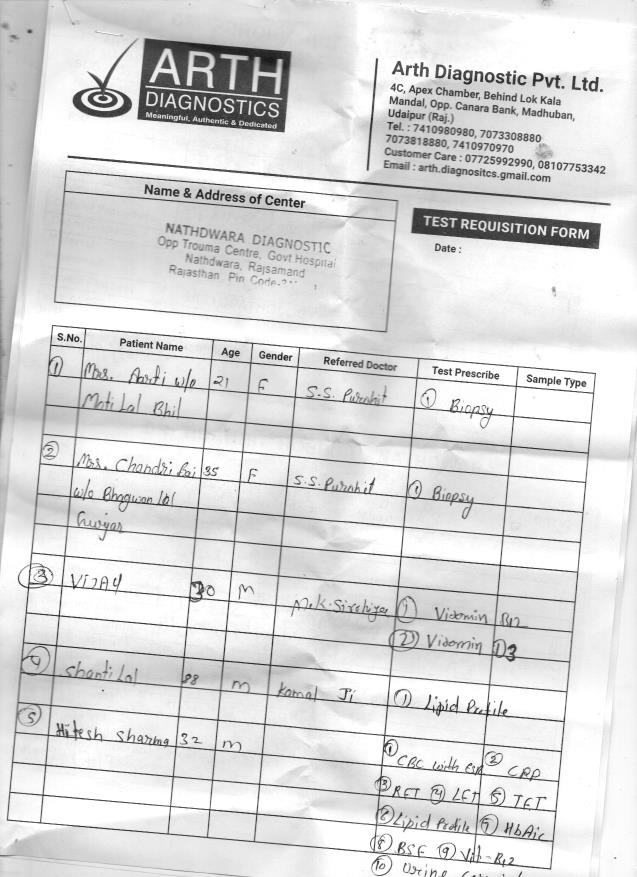 ARTH
DIAGNOSTICS
Meaningful, Authentic & Dedicated
Arth Diagnostic Pvt. Ltd.
4C, Apex Chamber, Behind Lok Kala
Mandal, Opp. Canara Bank, Madhuban,
Udaipur (Raj.)
Tel. : 7410980980, 7073308880
7073818880, 7410970970
Customer Care : 07725992990, 08107753342
Email : arth.diagnositcs.gmail.com
Name & Address of Center
NATHDWARA DIAGNOSTIC
Opp Trouma Centre, Govt Hospital
Nathdwara, Rajsamand
Rajasthan Pin Code-
TEST REQUISITION FORM
Date :
S.No. Patient Name Age Gender Referred Doctor Test Prescribe Sample Type
1 Mrs. Aarti w/o 21 F S.S. Purohit 1 Biopsy
Moti Lal Bhil
2 Mrs. Chandri Bai 35 F S.S. Purohit 1 Biopsy
w/o Bhagwan lal
Gurjar
3 VIJAY 30 M 1 Vidomin B12
2 Vidomin D3
4 Shanti Lal 88 M Kamal Ji 1 Lipid Profile
5 Hitesh Sharma 32 M 1 CBC with ESR 2 CRP
3 RFT 4 LFT 5 TFT
6 Lipid Profile 7 HbA1c
8 BSF 9 Vit-B12
10 Urine